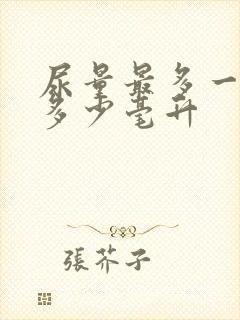 尿量最多一
多少毫升
張芥子